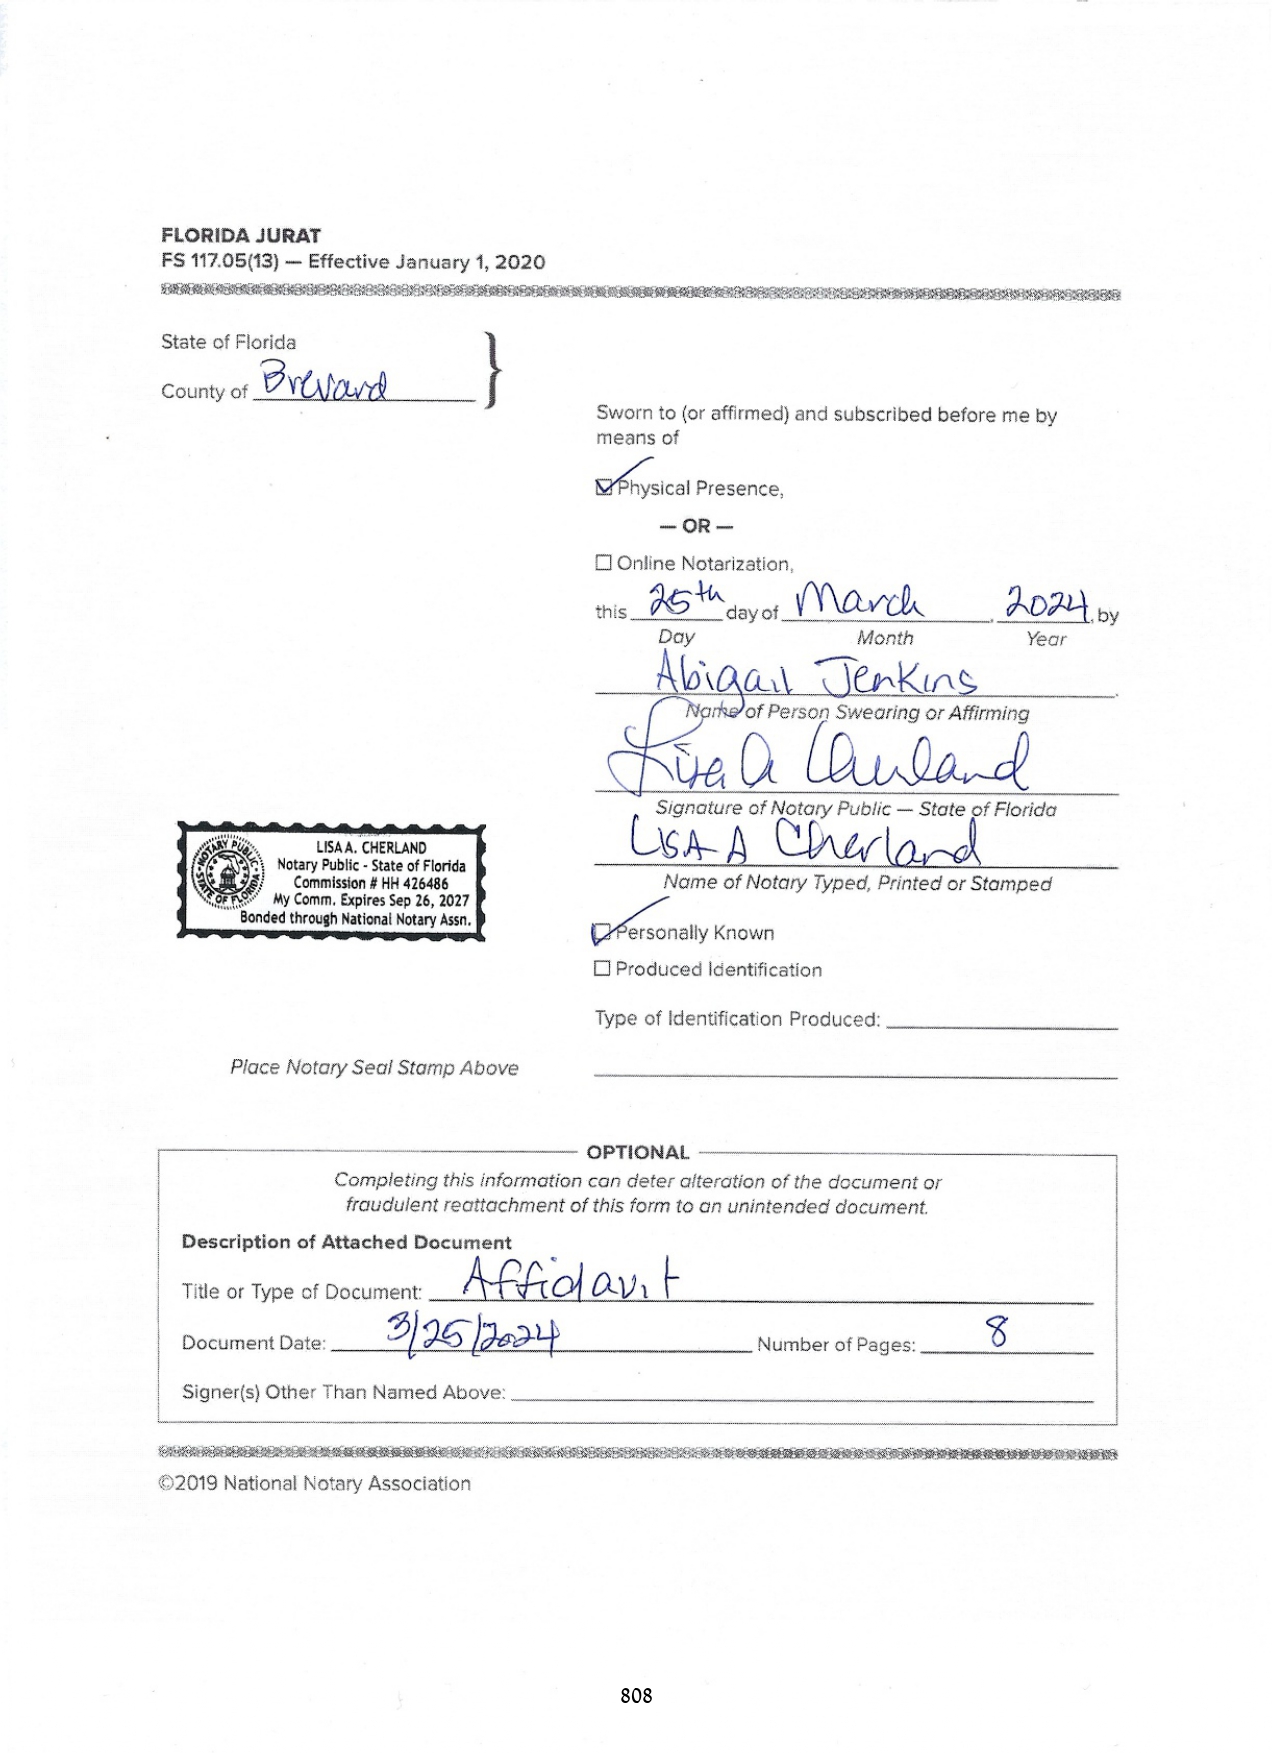 FLORIDA JURAT
FS 117.05(13) — Effective January 1, 2020
State of Florida
County of Brevard
Sworn to (or affirmed) and subscribed before me by
means of
☑ Physical Presence,
— OR —
☐ Online Notarization,
this 25th day of March, 2024, by
Day Month Year
Abigail Jenkins
Name of Person Swearing or Affirming
Lisa A Cherland
Signature of Notary Public — State of Florida
LISA A Cherland
Name of Notary Typed, Printed or Stamped
NOTARY PUBLIC
STATE OF FLORIDA
LISA A. CHERLAND
Notary Public - State of Florida
Commission # HH 426486
My Comm. Expires Sep 26, 2027
Bonded through National Notary Assn.
☑ Personally Known
☐ Produced Identification
Type of Identification Produced:
Place Notary Seal Stamp Above
OPTIONAL
Completing this information can deter alteration of the document or
fraudulent reattachment of this form to an unintended document.
Description of Attached Document
Title or Type of Document: Affidavit
Document Date: 3/25/2024 Number of Pages: 8
Signer(s) Other Than Named Above:
©2019 National Notary Association
808